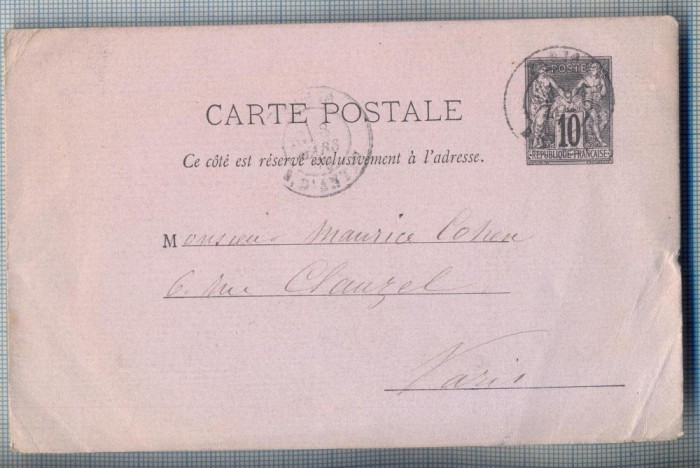 POSTE
10
REPUBLIQUE FRANCAISE
CARTE POSTALE
MARS
D'ANTIN
Ce côté est réservé exclusivement à l'adresse.
Monsieur Maurice Cohen
6. rue Clauzel
Paris